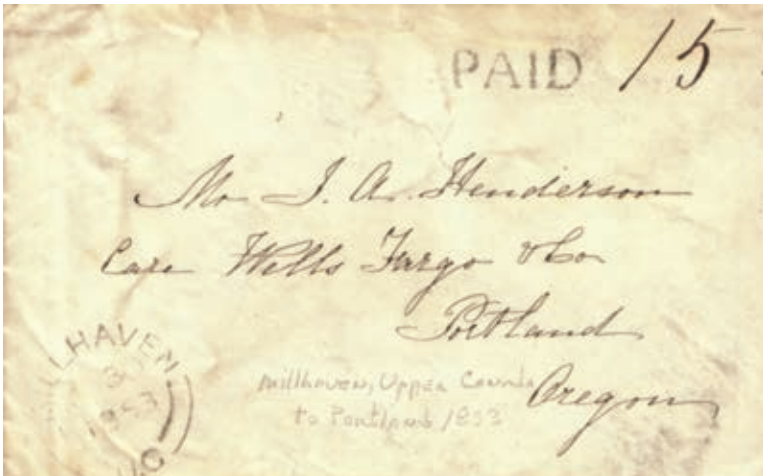 PAID 15
Mr J. A. Henderson
Care Wells Fargo & Co
Portland
Oregon
LHAVEN
1853
U.C
Millhaven, Upper Canada
to Portland 1853